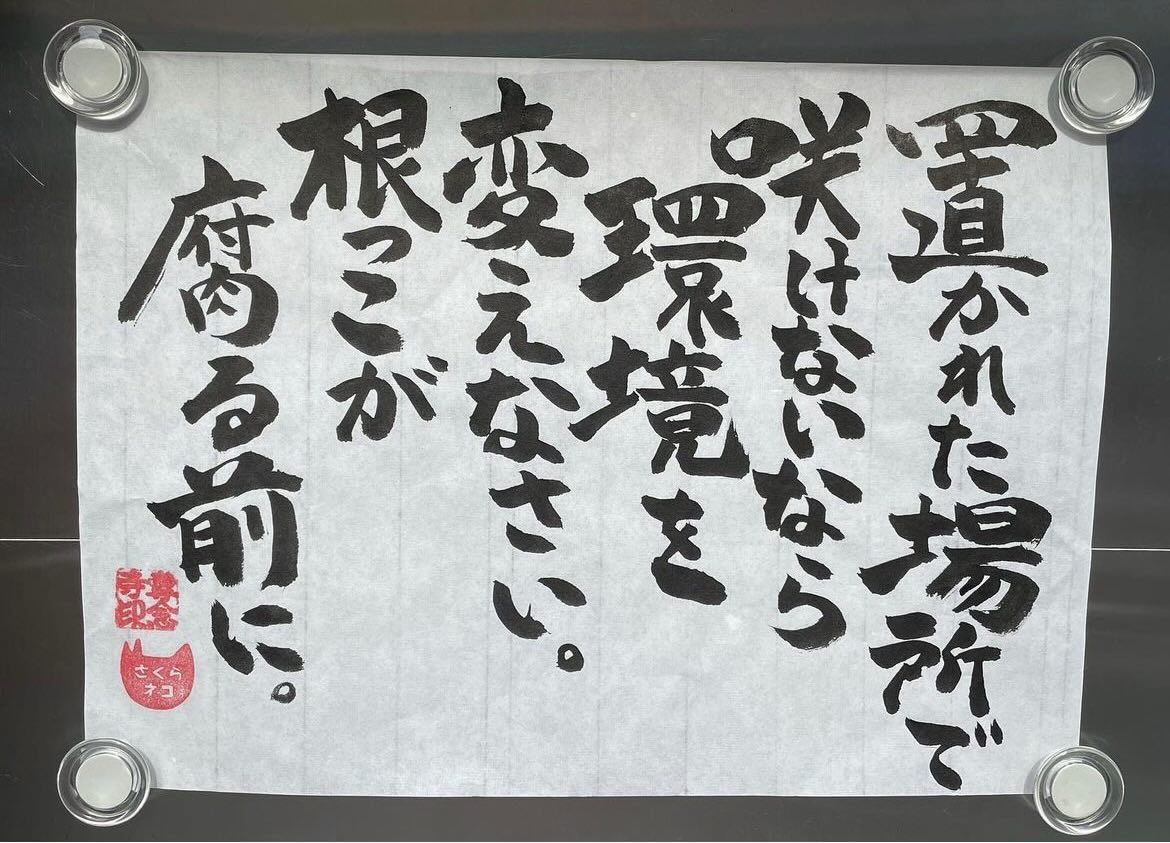 置かれた場所で
咲けないなら
環境を
変えなさい。
根っこが
腐る前に。
専念
寺印
さくら
ネコ